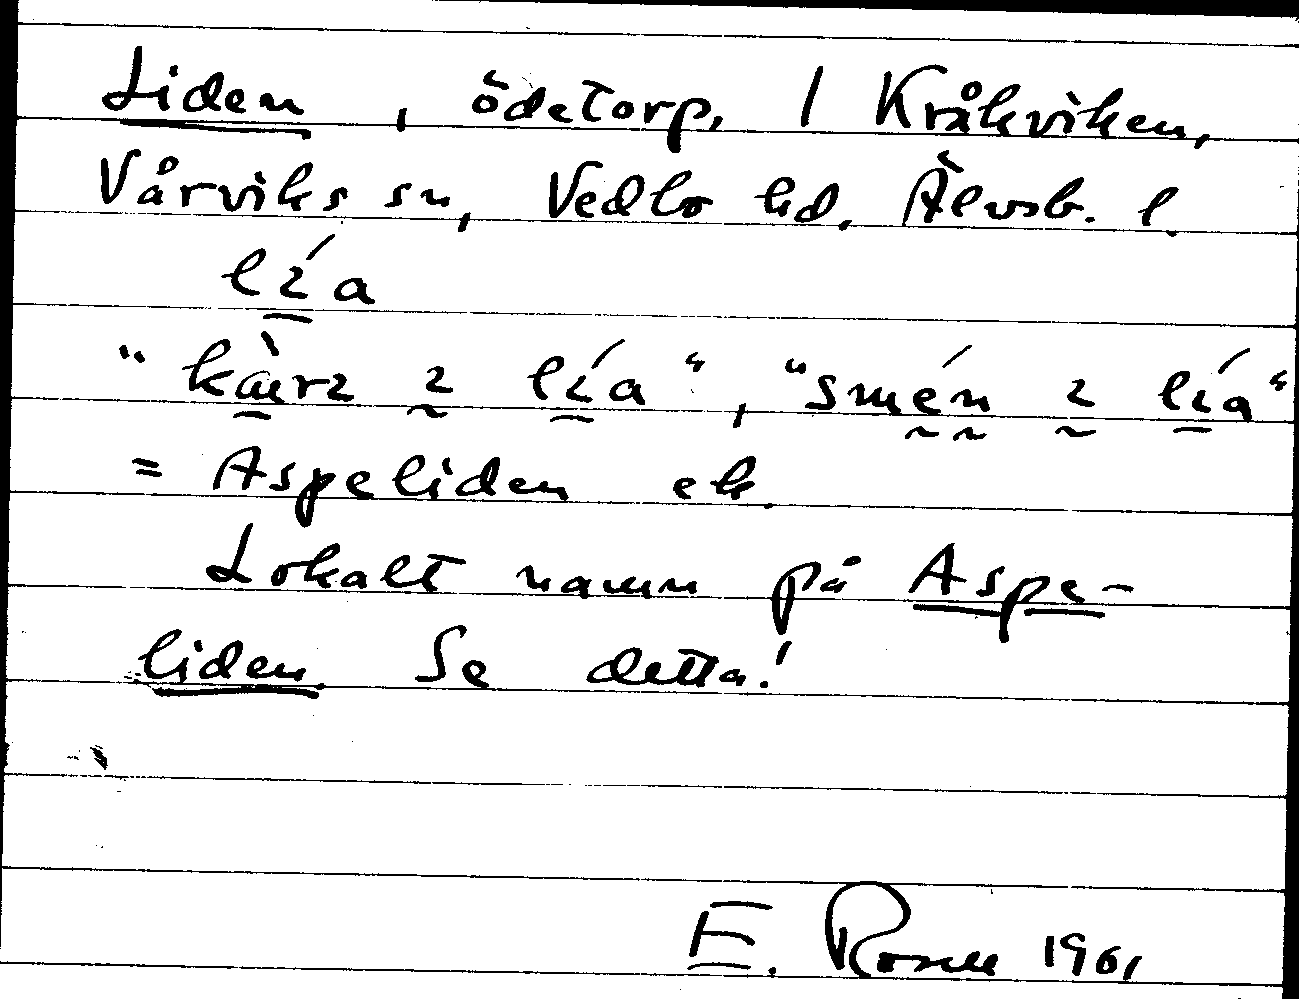 Liden, ödetorp, / Kråkviken,
Vårviks sn, Vedbo hd. Älvsb. l.
lía
"kærɩ ɩ lía", "smén ɩ lía"
= Aspeliden ek.
Lokalt namn på Aspe-
liden. Se detta!
E. 1961